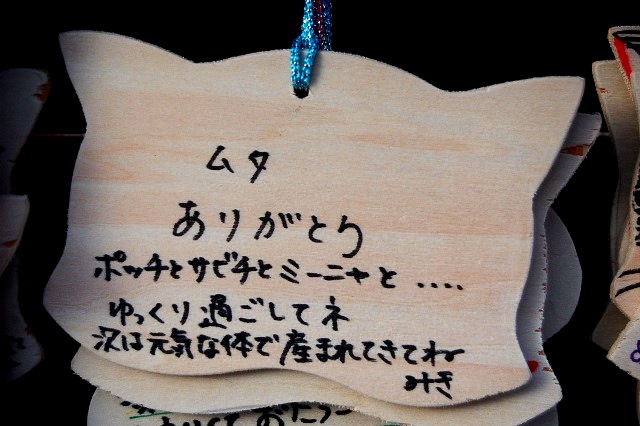 ムタ
ありがとう
ポッチとサビチとミーニャと ‥‥
ゆっくり過ごしてネ
次は元気な体で産まれてきてね
みき